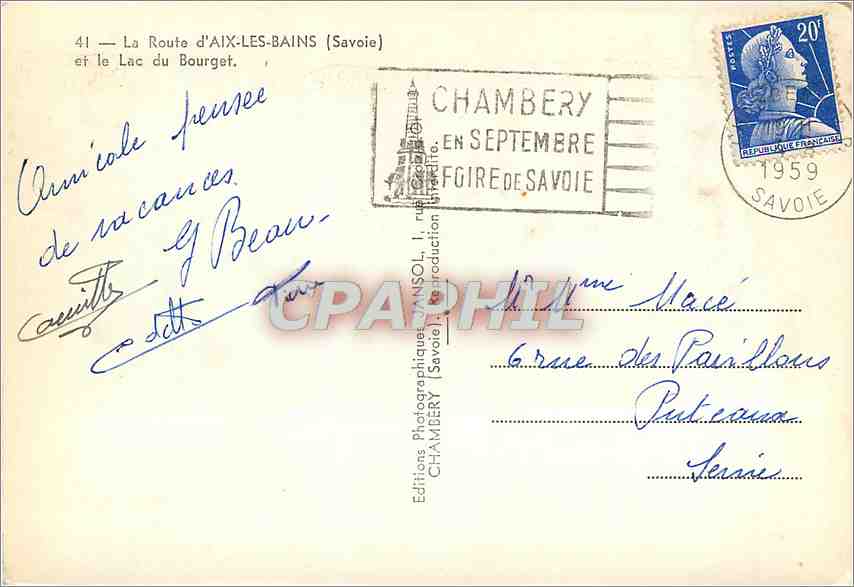 41 — La Route d'AIX-LES-BAINS (Savoie)
et le Lac du Bourget.
Amicale pensée
de vacances.
G Beau
Camille
Odette
CHAMBERY
EN SEPTEMBRE
FOIRE DE SAVOIE
POSTES
20F
REPUBLIQUE FRANÇAISE
1959
SAVOIE
Editions Photographiques JANSOL, 1, rue
CHAMBERY (Savoie). Reproduction interdite.
CPAPHIL
Mr Mme Macé
6 rue des Pavillons
Puteaux
Seine